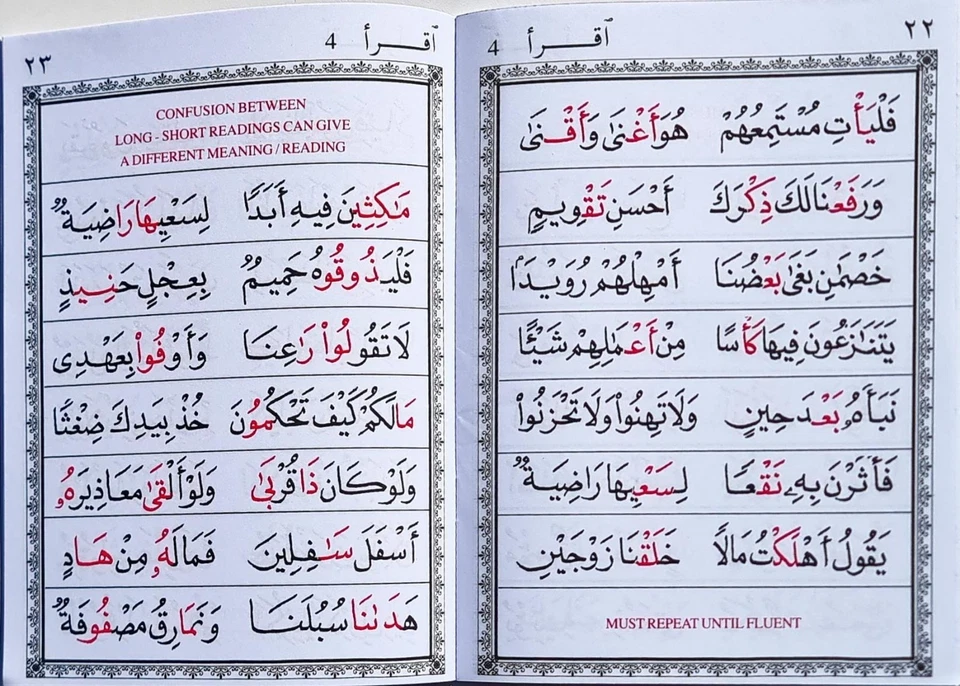 ٢٢
ٱقــرأ 4
فَلْيَأْتِ مُسْتَمِعُهُمْ هُوَأَغْنَىٰ وَأَقْنَىٰ
وَرَفَعْنَالَكَ ذِكْرَكَ أَحْسَنِ تَقْوِيمٍ
خَصْمَٰنِ بَغَىٰ بَعْضُنَا أَمْهِلْهُمْ رُوَيْدًا
يَتَنَٰزَعُونَ فِيهَا كَأْسًا مِنْ أَعْمَٰلِهِمْ شَيْئًا
نَبَأَهُۥ بَعْدَ حِينٍ وَلَا تَهِنُوا۟ وَلَا تَحْزَنُوا۟
فَأَثَرْنَ بِهِۦ نَقْعًا لِسَعْيِهَا رَاضِيَةٌ
يَقُولُ أَهْلَكْتُ مَالًا خَلَقْنَا زَوْجَيْنِ
MUST REPEAT UNTIL FLUENT
٢٣
ٱقــرأ 4
CONFUSION BETWEEN
LONG - SHORT READINGS CAN GIVE
A DIFFERENT MEANING / READING
مَٰكِثِينَ فِيهِ أَبَدًا لِسَعْيِهَا رَاضِيَةٌ
فَلْيَذُوقُوهُ حَمِيمٌ بِعِجْلٍ حَنِيذٍ
لَا تَقُولُوا۟ رَٰعِنَا وَأَوْفُوا۟ بِعَهْدِى
مَالَكُمْ كَيْفَ تَحْكُمُونَ خُذْ بِيَدِكَ ضِغْثًا
وَلَوْ كَانَ ذَا قُرْبَىٰ وَلَوْ أَلْقَىٰ مَعَاذِيرَهُۥ
أَسْفَلَ سَٰفِلِينَ فَمَالَهُۥ مِنْ هَادٍ
هَدَىٰنَا سُبُلَنَا وَنَمَارِقُ مَصْفُوفَةٌ